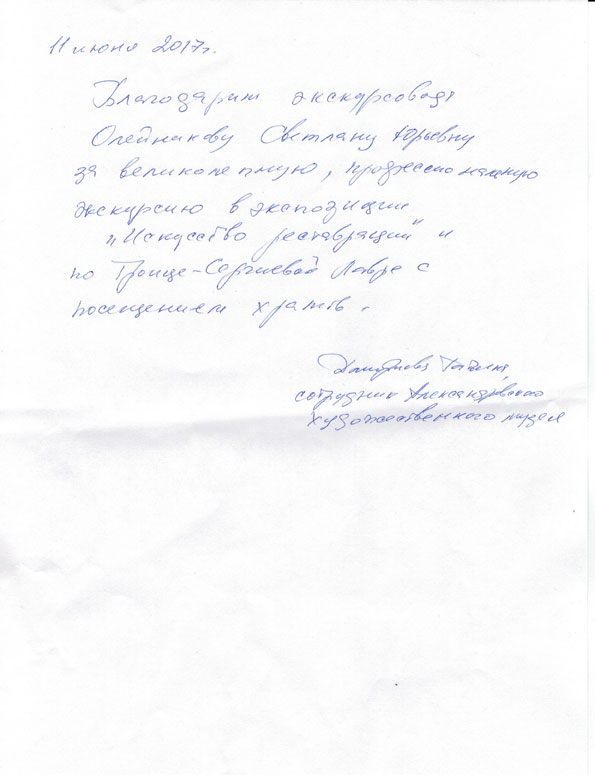 11 июня 2017г.
Благодарим экскурсовода
Олейникову Светлану Юрьевну
за великолепную, профессиональную
экскурсию в экспозиции
"Искусство реставрации" и
по Троице-Сергиевой Лавре с
посещением храмов.
сотрудник Александровского
художественного музея